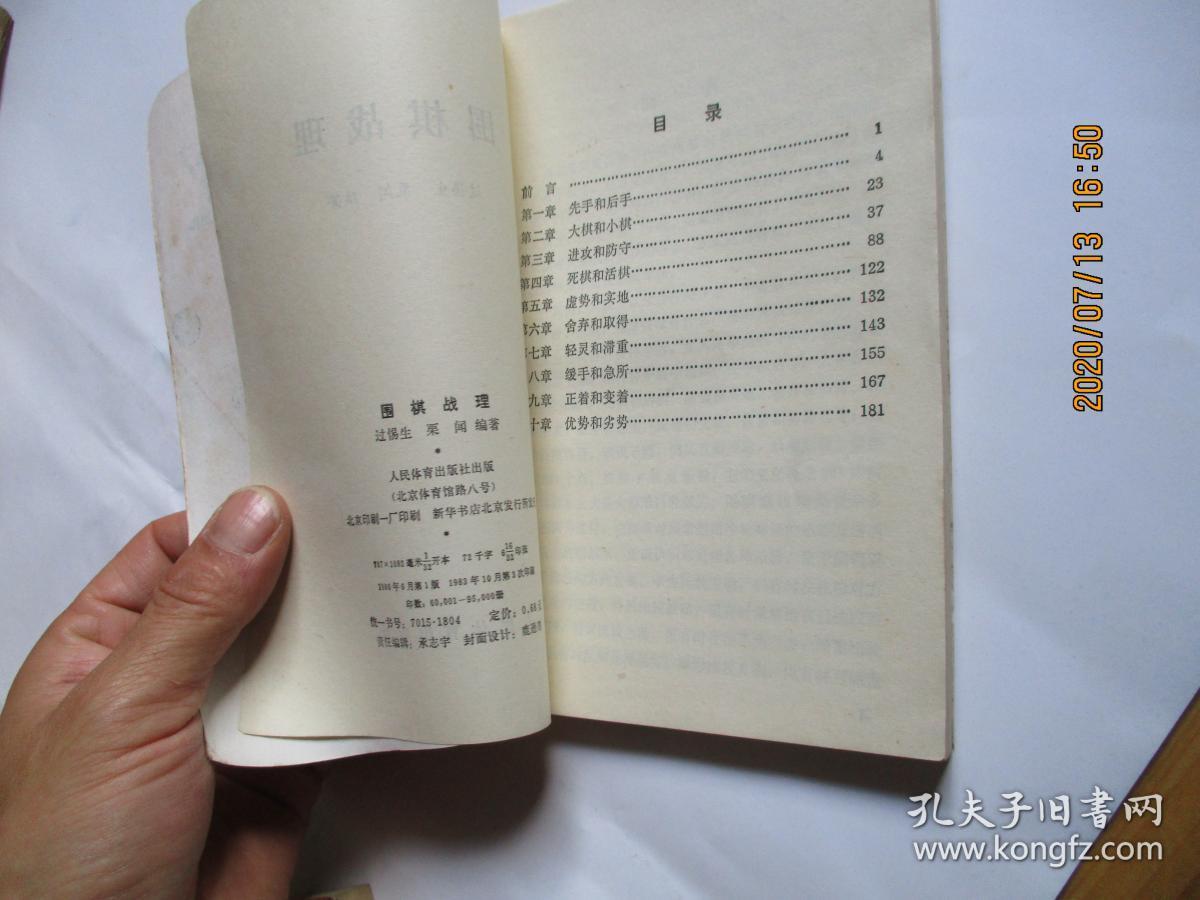 围棋战理
过惕生 栗 闻 编著
人民体育出版社出版
(北京体育馆路八号)
北京印刷一厂印刷 新华书店北京发行所
787×1092毫米 1/32开本 72千字 6 16/32印张
6月第1版 1983年10月第3次印刷
印数:60,001—95,000册
统一书号:7015·1804 定价:0.68元
责任编辑:承志宇 封面设计:
目录
前言………1
第一章 先手和后手………4
第二章 大棋和小棋………23
第三章 进攻和防守………37
第四章 死棋和活棋………88
第五章 虚势和实地………122
第六章 舍弃和取得………132
第七章 轻灵和滞重………143
八章 缓手和急所………155
九章 正着和变着………167
十章 优势和劣势………181
2020/07/13 16:50
孔夫子旧书网
www.kongfz.com